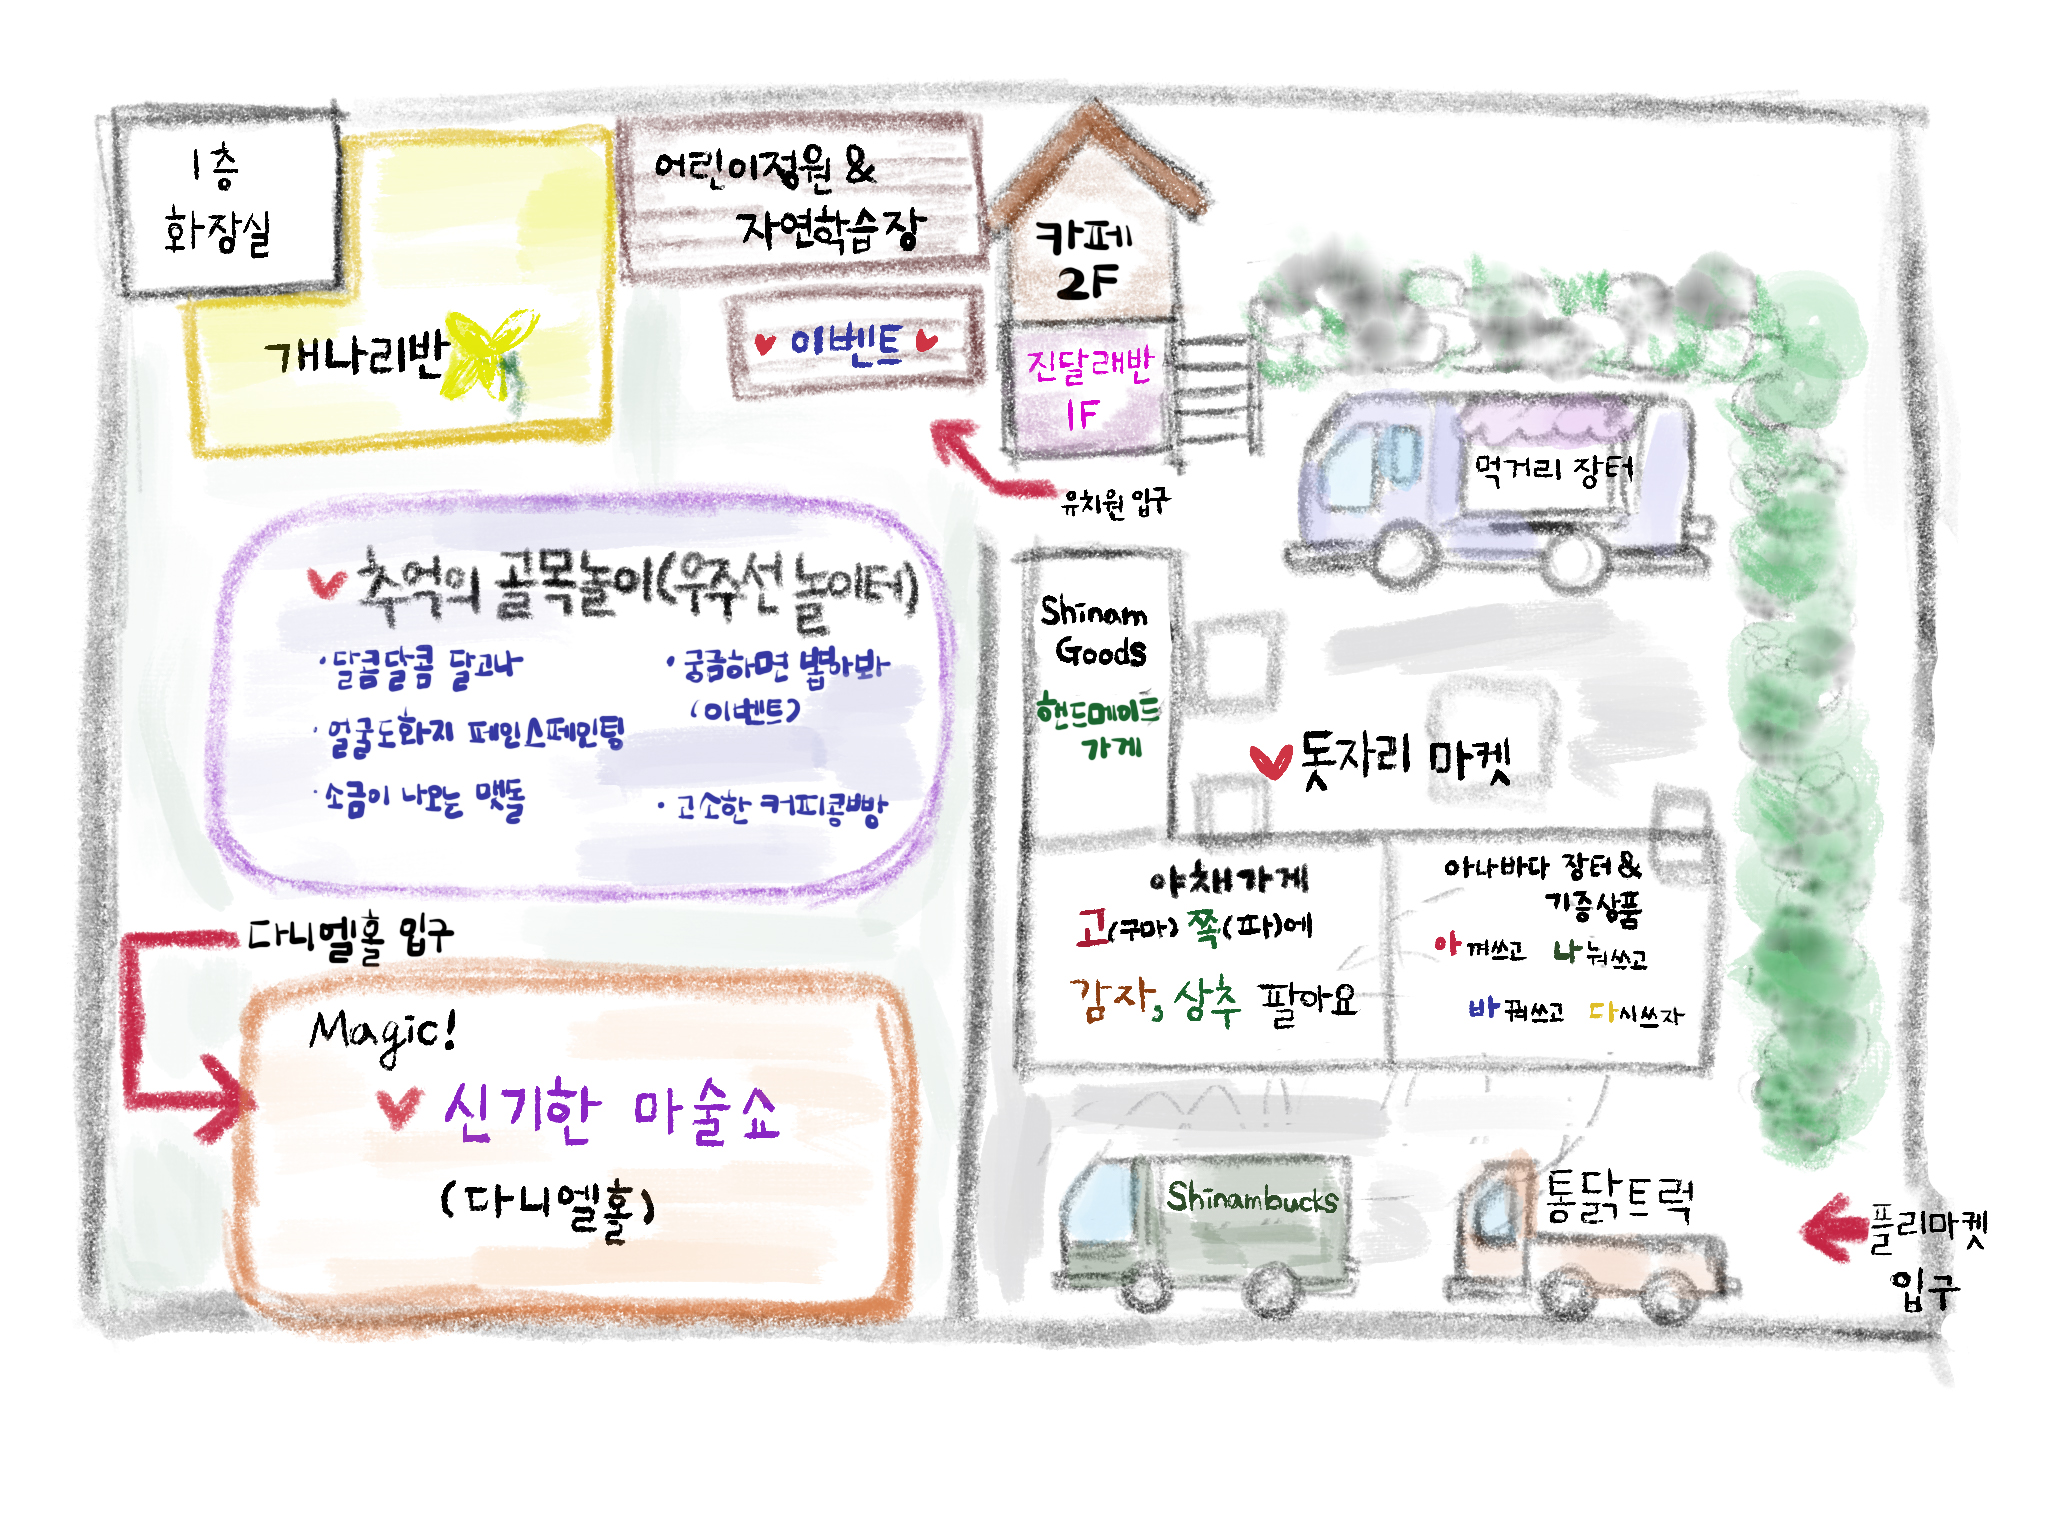 1층
화장실
개나리반
어린이정원 &
자연학습장
이벤트
카페
2F
진달래반
1F
유치원 입구
먹거리 장터
추억의 골목놀이(우주선 놀이터)
· 달콤달콤 달고나
· 궁금하면 뽑아봐
(이벤트)
· 얼굴도화지 페인스페인팅
· 소금이 나오는 맷돌
· 고소한 커피콩빵
다니엘홀 입구
Magic!
신기한 마술쇼
(다니엘홀)
Shinam
Goods
핸드메이드
가게
돗자리 마켓
야채가게
고(구마) 쪽(파)에
감자, 상추 팔아요
아나바다 장터 &
기증상품
아껴쓰고 나눠쓰고
바꿔쓰고 다시쓰자
Shinambucks
통닭트럭
플리마켓
입구